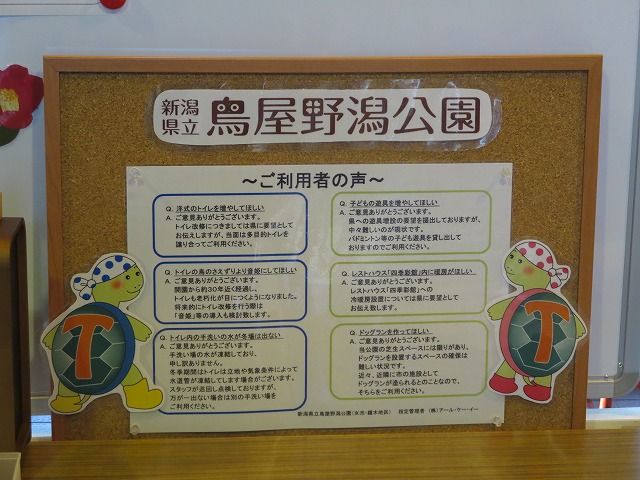 新潟
県立
鳥屋野潟公園
～ご利用者の声～
Q. 洋式のトイレを増やしてほしい
A. ご意見ありがとうございます。
トイレ改修につきましては県に要望として
お伝えしますが、当面は多目的トイレを
譲り合ってご利用ください。
Q. トイレの鳥のさえずりより音姫にしてほしい
A. ご意見ありがとうございます。
開園から約30年近く経過し、
トイレも老朽化が目につくようになりました。
将来的にトイレ改修を行う際は
「音姫」等の導入も検討致します。
Q. トイレ内の手洗いの水が冬場は出ない
A. ご意見ありがとうございます。
手洗い場の水が凍結しており、
申し訳ありません。
冬季期間はトイレは立地や気象条件によって
水道管が凍結してします場合がございます。
スタッフが巡回し点検しておりますが、
万が一出ない場合は別の手洗い場を
ご利用ください。
Q. 子どもの遊具を増やしてほしい
A. ご意見ありがとうございます。
県への遊具増設の要望を提出しておりますが、
中々難しいのが現状です。
バドミントン等の子ども遊具を貸し出して
おりますのでご利用ください。
Q. レストハウス「四季彩館」内に暖房がほしい
A. ご意見ありがとうございます。
レストハウス「四季彩館」への
冷暖房設置については県に要望として
お伝え致します。
Q. ドッグランを作ってほしい
A. ご意見ありがとうございます。
当公園の芝生スペースには限りがあり、
ドッグランを設置するスペースの確保は
難しい状況です。
近々、近隣に市の施設として
ドッグランが造られるとのことなので、
そちらをご利用ください。
新潟県立鳥屋野潟公園(女池・鐘木地区) 指定管理者 (株)アール・ケー・イー
T
T